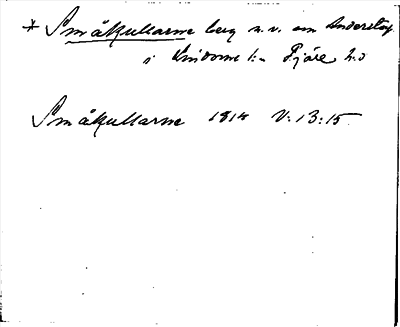 * Småkullarne berg n.v. om Anderstorp
i Lindome s:n Fjäre h:d
Småkullarne 1814 V:13:15